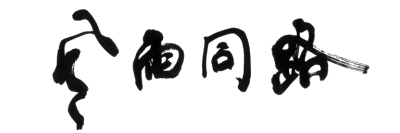 风雨同路